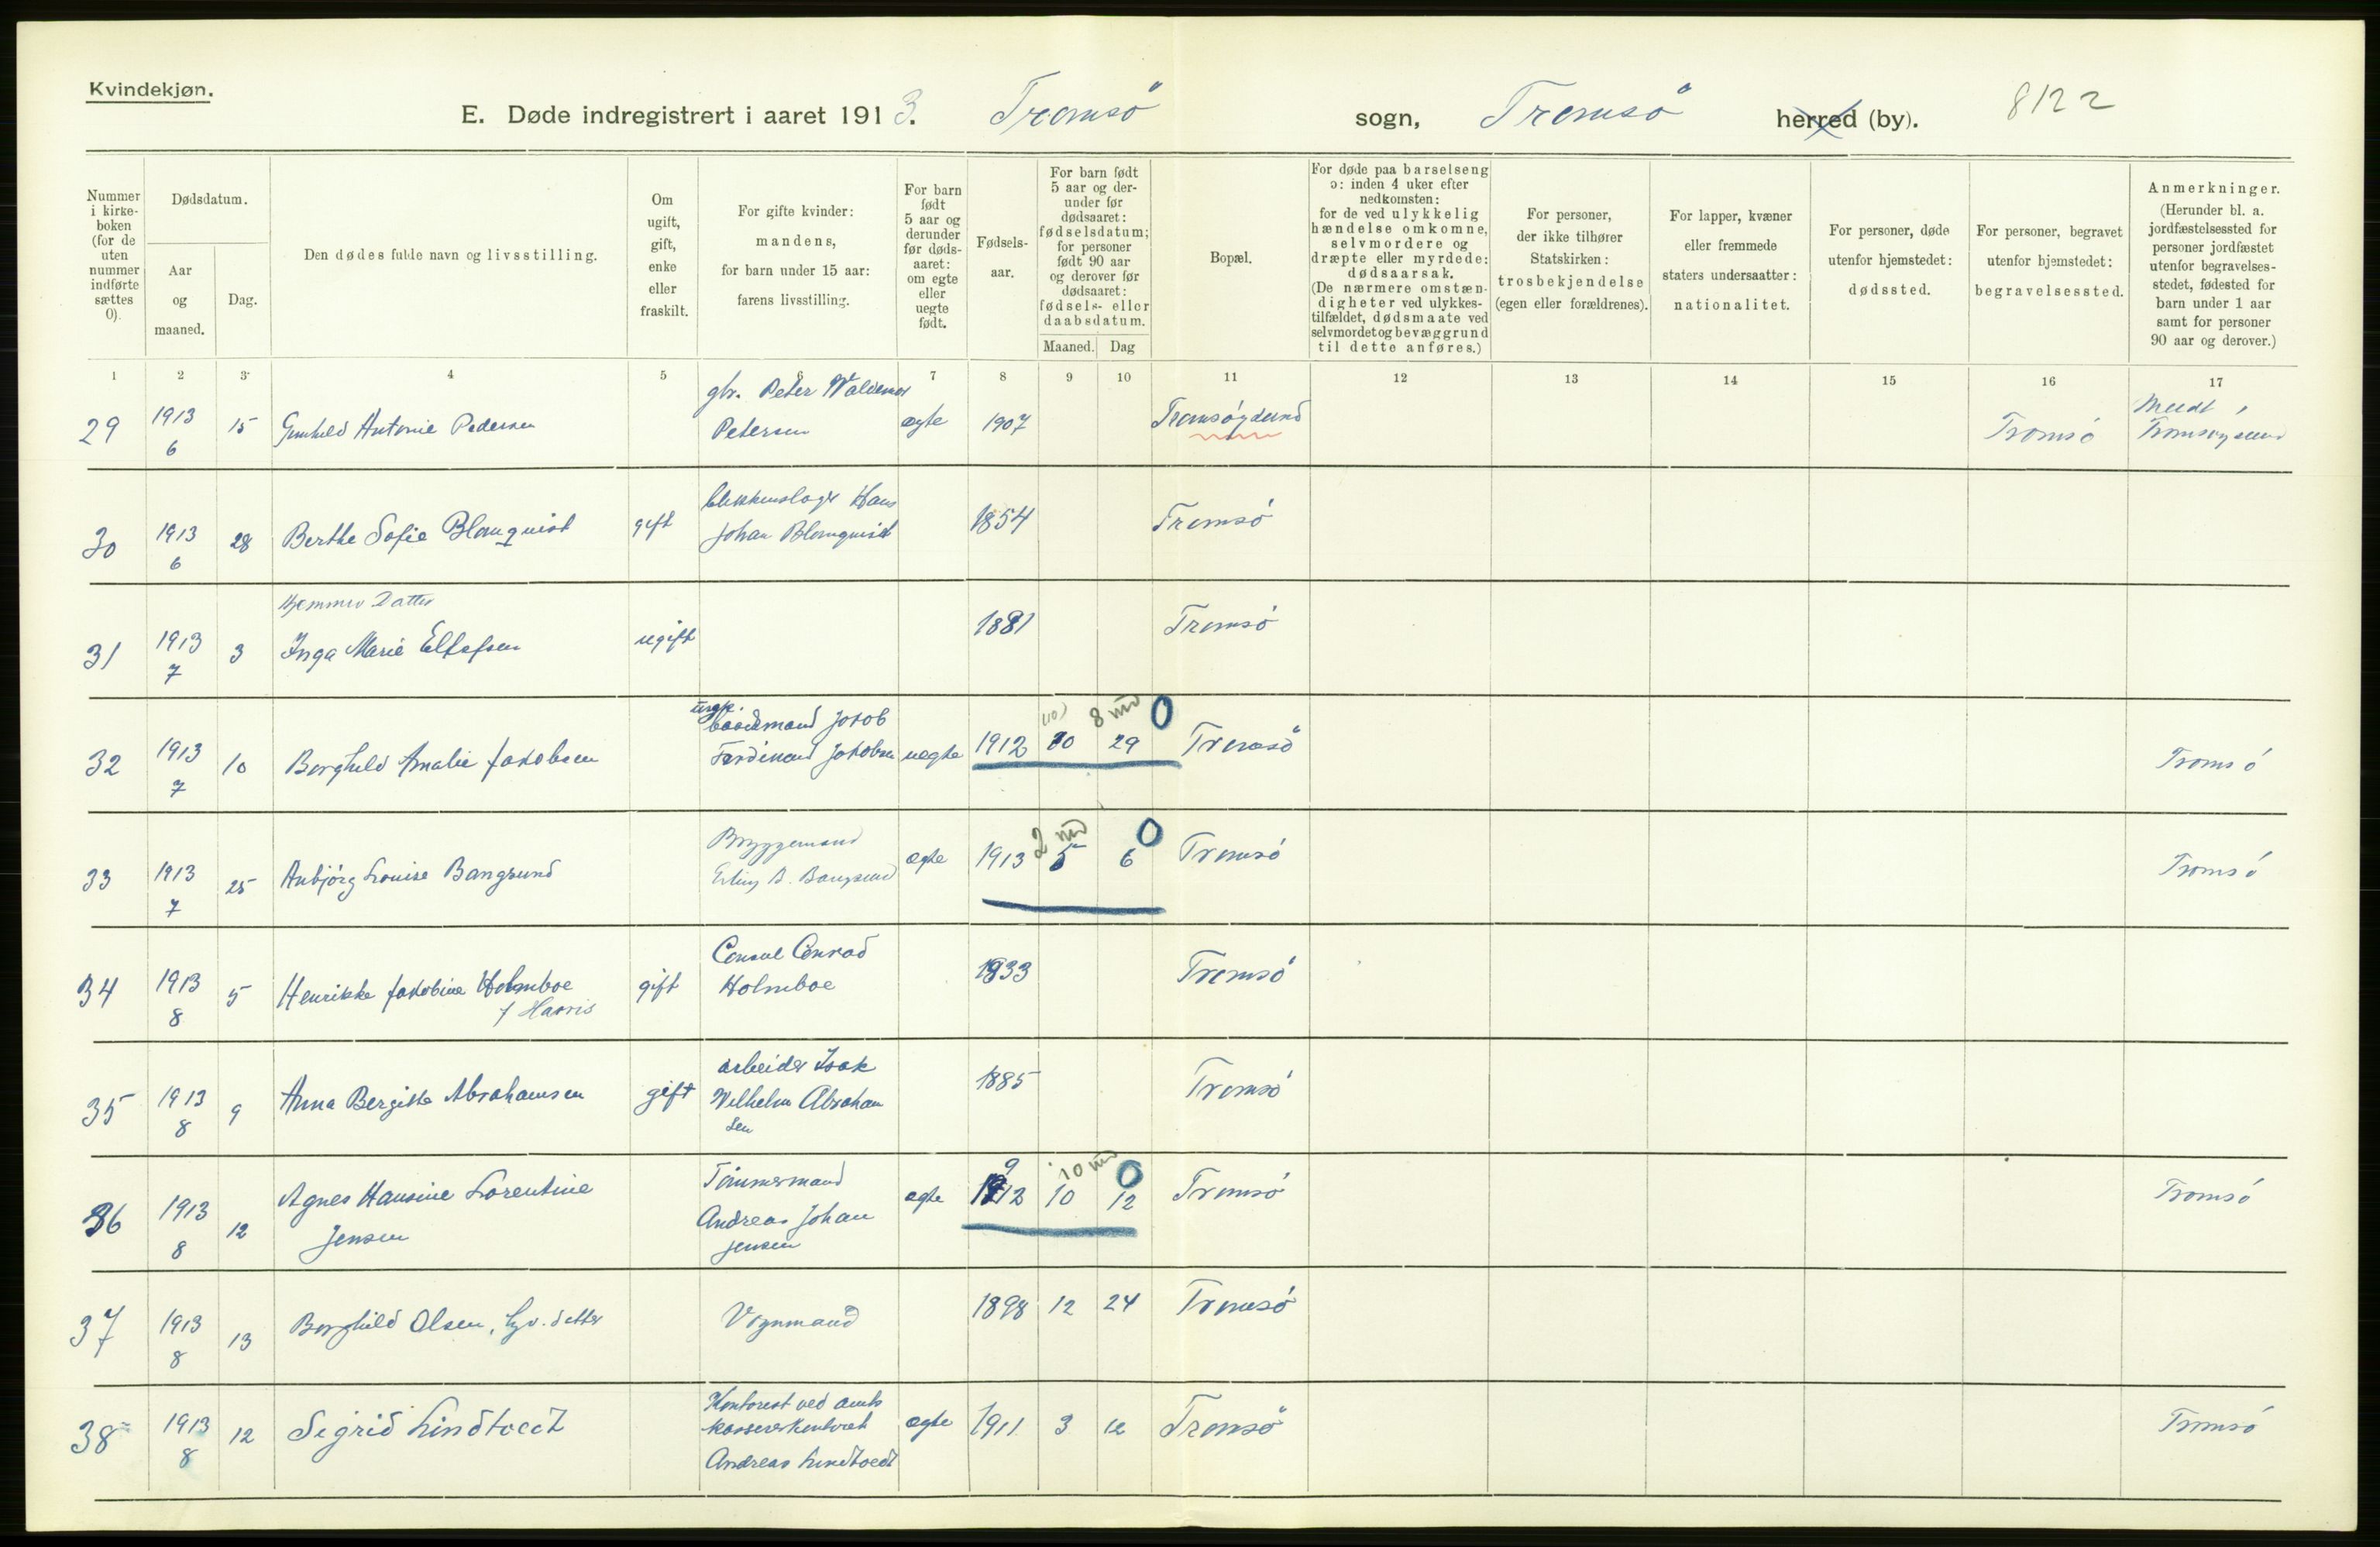 Kvindekjøn.
E. Døde indregistrert i aaret 1913. Tromsö sogn, Tromsö herred (by). 8122
Nummer i kirke-boken (for de uten nummer indførte sættes 0).
Dødsdatum.
Aar og maaned.
Dag.
Den dødes fulde navn og livsstilling.
Om ugift, gift, enke eller fraskilt.
For gifte kvinder: mandens, for barn under 15 aar: farens livsstilling.
For barn født 5 aar og derunder før døds-aaret: om egte eller uegte født.
Fødsels-aar.
For barn født 5 aar og der-under før dødsaaret: fødselsdatum; for personer født 90 aar og derover før dødsaaret: fødsels- eller daabsdatum.
Maaned. Dag
Bopæl.
For døde paa barselseng ɔ: inden 4 uker efter nedkomsten: for de ved ulykkelig hændelse omkomne, selvmordere og dræpte eller myrdede: dødsaarsak. (De nærmere omstæn-digheter ved ulykkes-tilfældet, dødsmaate ved selvmordet og bevæggrund til dette anføres.)
For personer, der ikke tilhører Statskirken: trosbekjendelse (egen eller forældrenes).
For lapper, kvæner eller fremmede staters undersaatter: nationalitet.
For personer, døde utenfor hjemstedet: dødssted.
For personer, begravet utenfor hjemstedet: begravelsessted.
Anmerkninger. (Herunder bl. a. jordfæstelsessted for personer jordfæstet utenfor begravelses-stedet, fødested for barn under 1 aar samt for personer 90 aar og derover.)
1 2 3 4 5 6 7 8 9 10 11 12 13 14 15 16 17
29 1913 6 15 Gunhild Antonie Pedersen gbr. Peter Waldemar Petersen egte 1907 Tromsöysund Tromsö Tromsöysund
30 1913 6 28 Berthe Sofie Blomquist gift blikkenslager Hans Johan Blomquist 1854 Tromsö
31 1913 7 3 Hjemmev Datter Inga Marie ugift 1881 Tromsö
32 1913 7 10 Borghild Amalie Jakobsen ungk. baadsmand Jakob Ferdinand Jakobsen uegte 1912 10 29 (10) 8 md 0 Tromsö Tromsö
33 1913 7 25 Anbjörg Louise Bangsund Bryggemand Erling B. Bangsund egte 1913 5 6 2 md 0 Tromsö Tromsö
34 1913 8 5 Henrikke Jakobine Holmboe f Harris gift Consul Conrad Holmboe 1833 Tromsö
35 1913 8 9 Anna Bergitte Abrahamsen gift arbeider Isak Vilhelm Abraham sen 1885 Tromsö
36 1913 8 12 Agnes Hansine Lorentine Jensen Tömmermand Andreas Johan Jensen egte 1912 9 10 12 10 md 0 Tromsö Tromsö
37 1913 8 13 Borghild Olsen, hjv. datter Vognmand 1898 12 24 Tromsö
38 1913 8 12 Sigrid Lindtvedt Kontorist ved amts kassererkontoret Andreas Lindtvedt egte 1911 3 12 Tromsö Tromsö